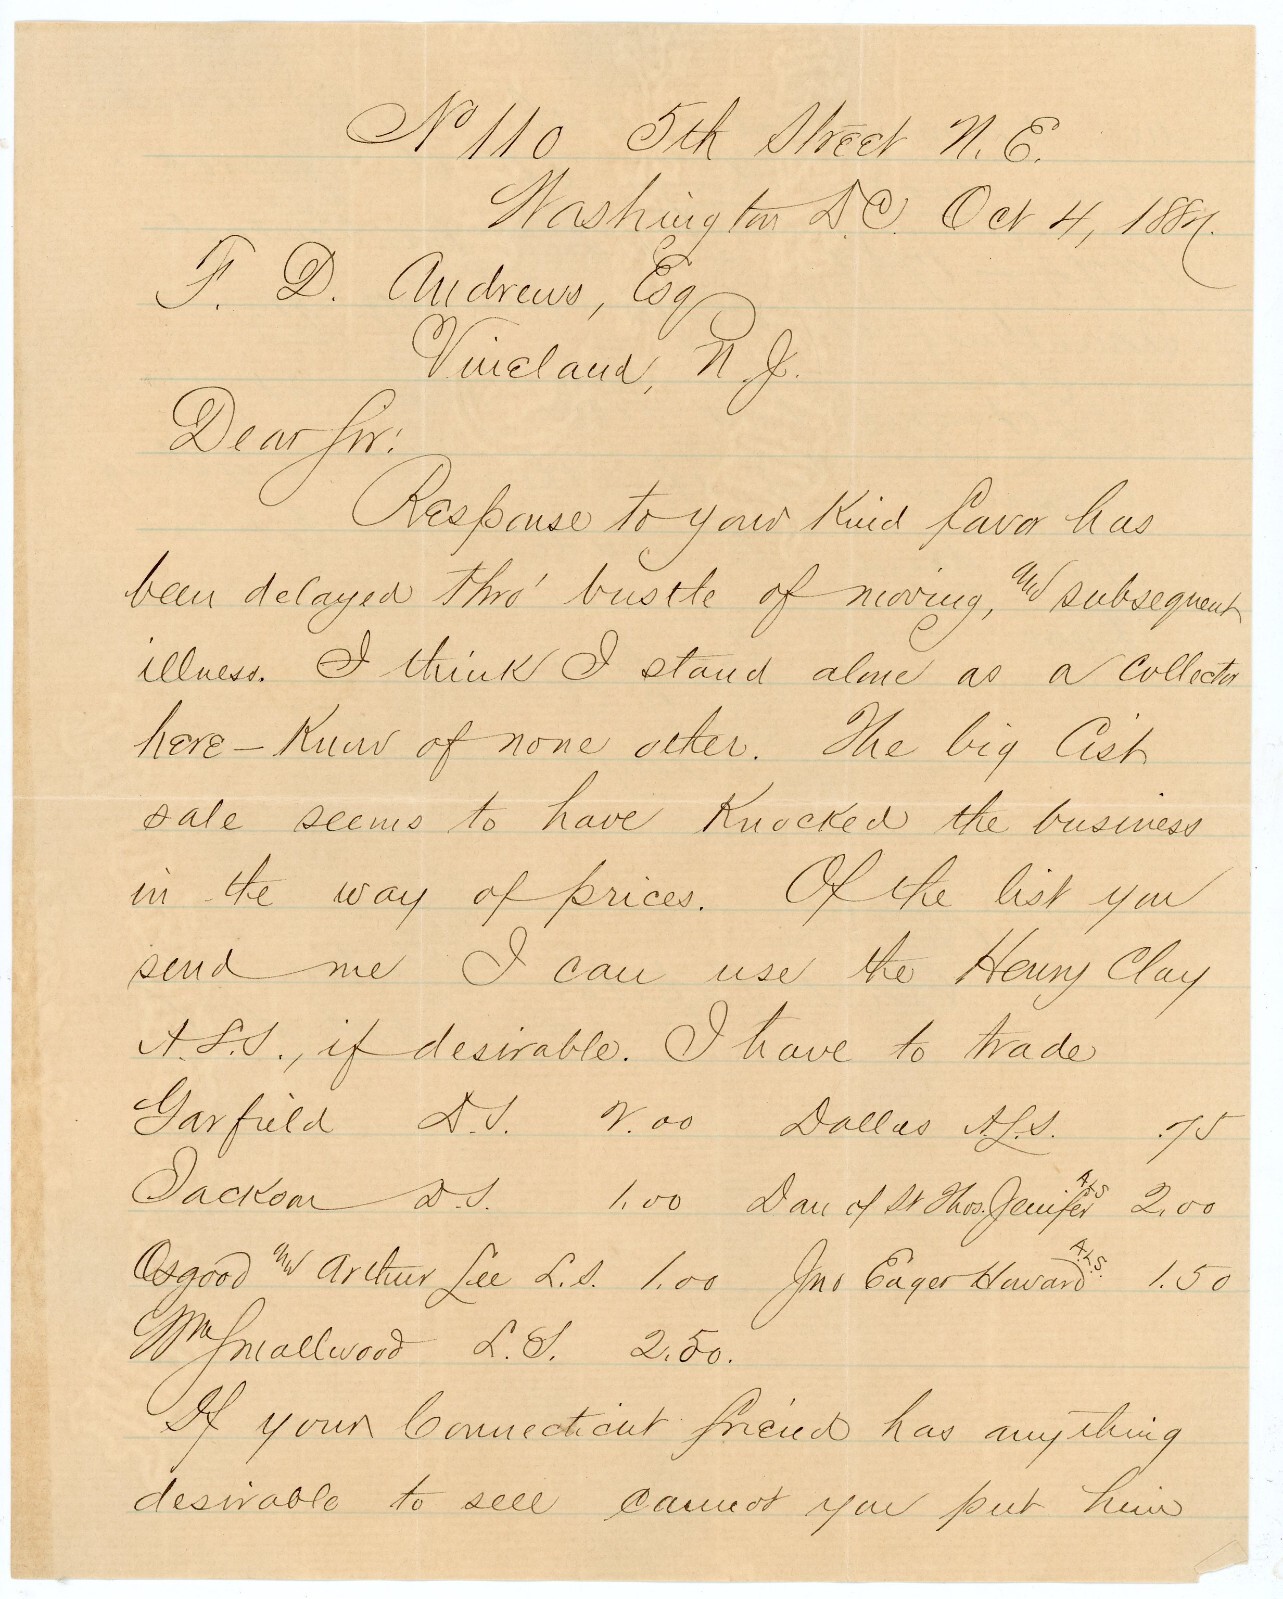 No 110 5th Street N. E.
Washington D.C. Oct 4, 1887.
F. D. Andrews, Esq
Vineland, N. J.
Dear Sir:
Response to your kind favor has
been delayed thro' bustle of moving, and subsequent
illness. I think I stand alone as a collector
here – know of none other. The big Cist
sale seems to have knocked the business
in the way of prices. Of the list you
send me I can use the Henry Clay
A.L.S., if desirable. I have to trade
Garfield D.S. 2.00 Dallas A.L.S. .75
Jackson D.S. 1.00 Dan of St Thos. Jenifer A.L.S 2.00
Osgood and Arthur Lee L.S. 1.00 Jno Eager Howard A.L.S. 1.50
Wm Smallwood L.S. 2.50.
If your Connecticut friend has anything
desirable to sell cannot you put him